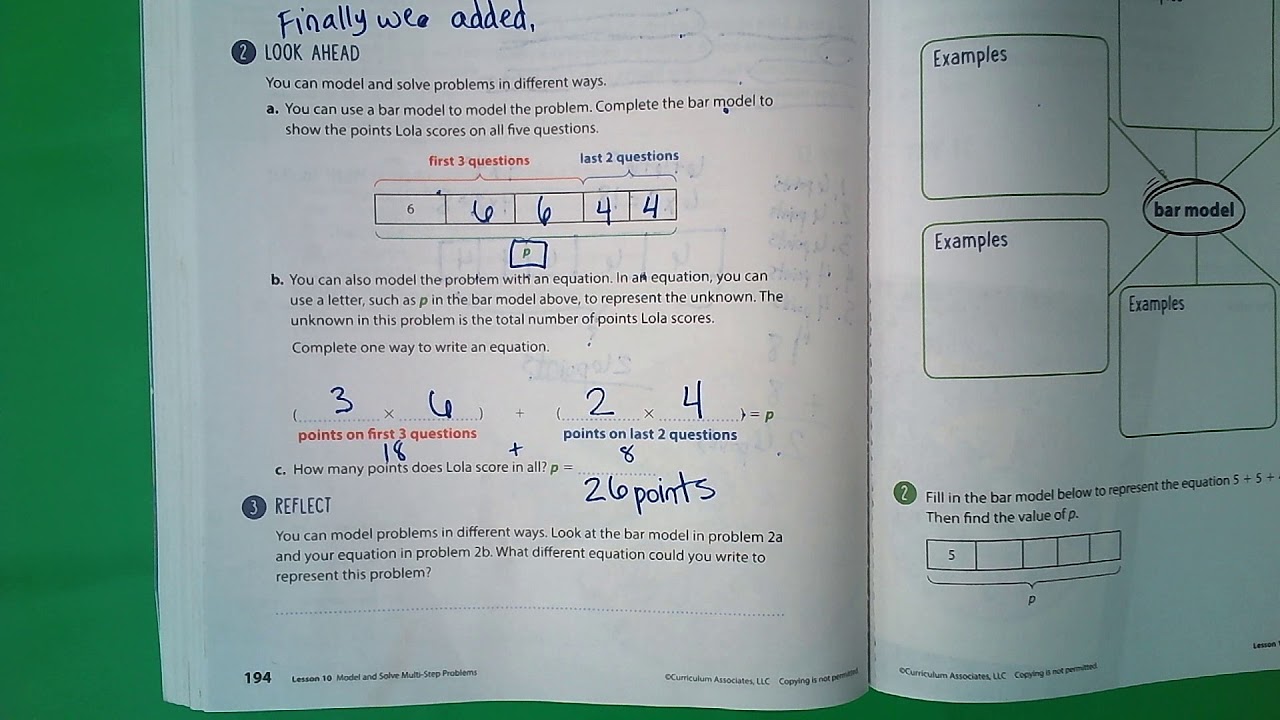 Finally we added.
2 LOOK AHEAD
You can model and solve problems in different ways.
a. You can use a bar model to model the problem. Complete the bar model to
show the points Lola scores on all five questions.
first 3 questions last 2 questions
6 6 6 4 4
p
b. You can also model the problem with an equation. In an equation, you can
use a letter, such as p in the bar model above, to represent the unknown. The
unknown in this problem is the total number of points Lola scores.
Complete one way to write an equation.
( 3 × 6 ) + ( 2 × 4 ) = p
points on first 3 questions points on last 2 questions
18 + 8
c. How many points does Lola score in all? p =
26 points
3 REFLECT
You can model problems in different ways. Look at the bar model in problem 2a
and your equation in problem 2b. What different equation could you write to
represent this problem?
194 Lesson 10 Model and Solve Multi-Step Problems ©Curriculum Associates, LLC Copying is not permitted
Examples
bar model
Examples
Examples
2 Fill in the bar model below to represent the equation 5 + 5 +
Then find the value of p.
5
p
Lesson
©Curriculum Associates, LLC Copying is not permitted.